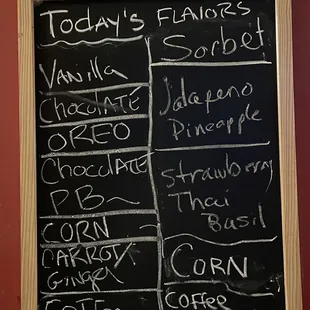 Today's FLAVORS
Vanilla
Chocolate
OREO
Chocolate
PB
CORN
CARROT
Ginger
Sorbet
Jalapeno
Pineapple
Strawberry
Thai
Basil
CORN
Coffee